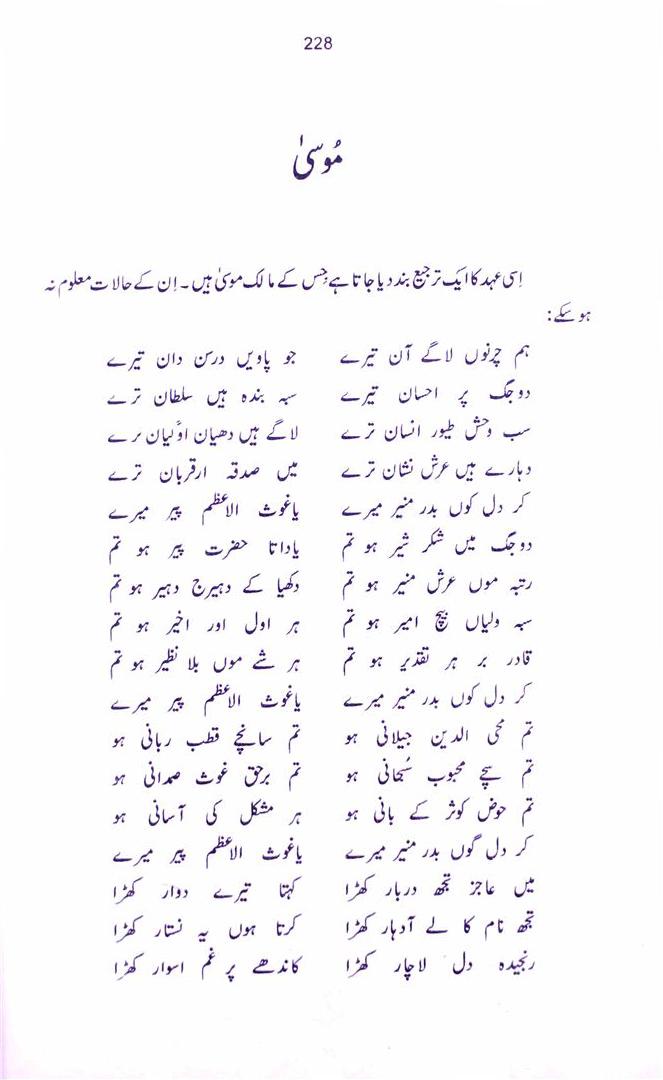 228
مُوسیٰ
اِسی عہد کا ایک ترجیع بند دیا جاتا ہے جِس کے مالک موسیٰ ہیں۔ اِن کے حالات معلوم نہ
ہوسکے:
ہم چرنوں لاگے آن تیرے جو پاویں درسن دان تیرے
دوجگ پر احسان تیرے سبہ بندہ ہیں سلطان ترے
سب وحش طیور انسان ترے لاگے ہیں دھیان اوّلیان برے
دہارے ہیں عرش نشان ترے میں صدقہ ارقربان ترے
کر دل کوں بدر منیر میرے یاغوث الاعظم پیر میرے
دوجگ میں شکر شیر ہو تم یاداتا حضرت پیر ہو تم
رتبہ موں عرش منیر ہو تم دکھیا کے دہیرج دہیر ہو تم
سبہ ولیاں بیچ امیر ہو تم ہر اول اور اخیر ہو تم
قادر بر ہر تقدیر ہو تم ہر شے موں بلا نظیر ہو تم
کر دل کوں بدر منیر میرے یاغوث الاعظم پیر میرے
تم محی الدین جیلانی ہو تم سانچے قطب ربانی ہو
تم سچے محبوب سُبحانی ہو تم برحق غوث صمدانی ہو
تم حوض کوثر کے بانی ہو ہر مشکل کی آسانی ہو
کر دل گوں بدر منیر میرے یاغوث الاعظم پیر میرے
میں عاجز تجھ دربار کھڑا کہتا تیرے دوار کھڑا
تجھ نام کا لے آدہار کھڑا کرتا ہوں یہ نستار کھڑا
رنجیدہ دل لاچار کھڑا کاندھے پر غم اسوار کھڑا